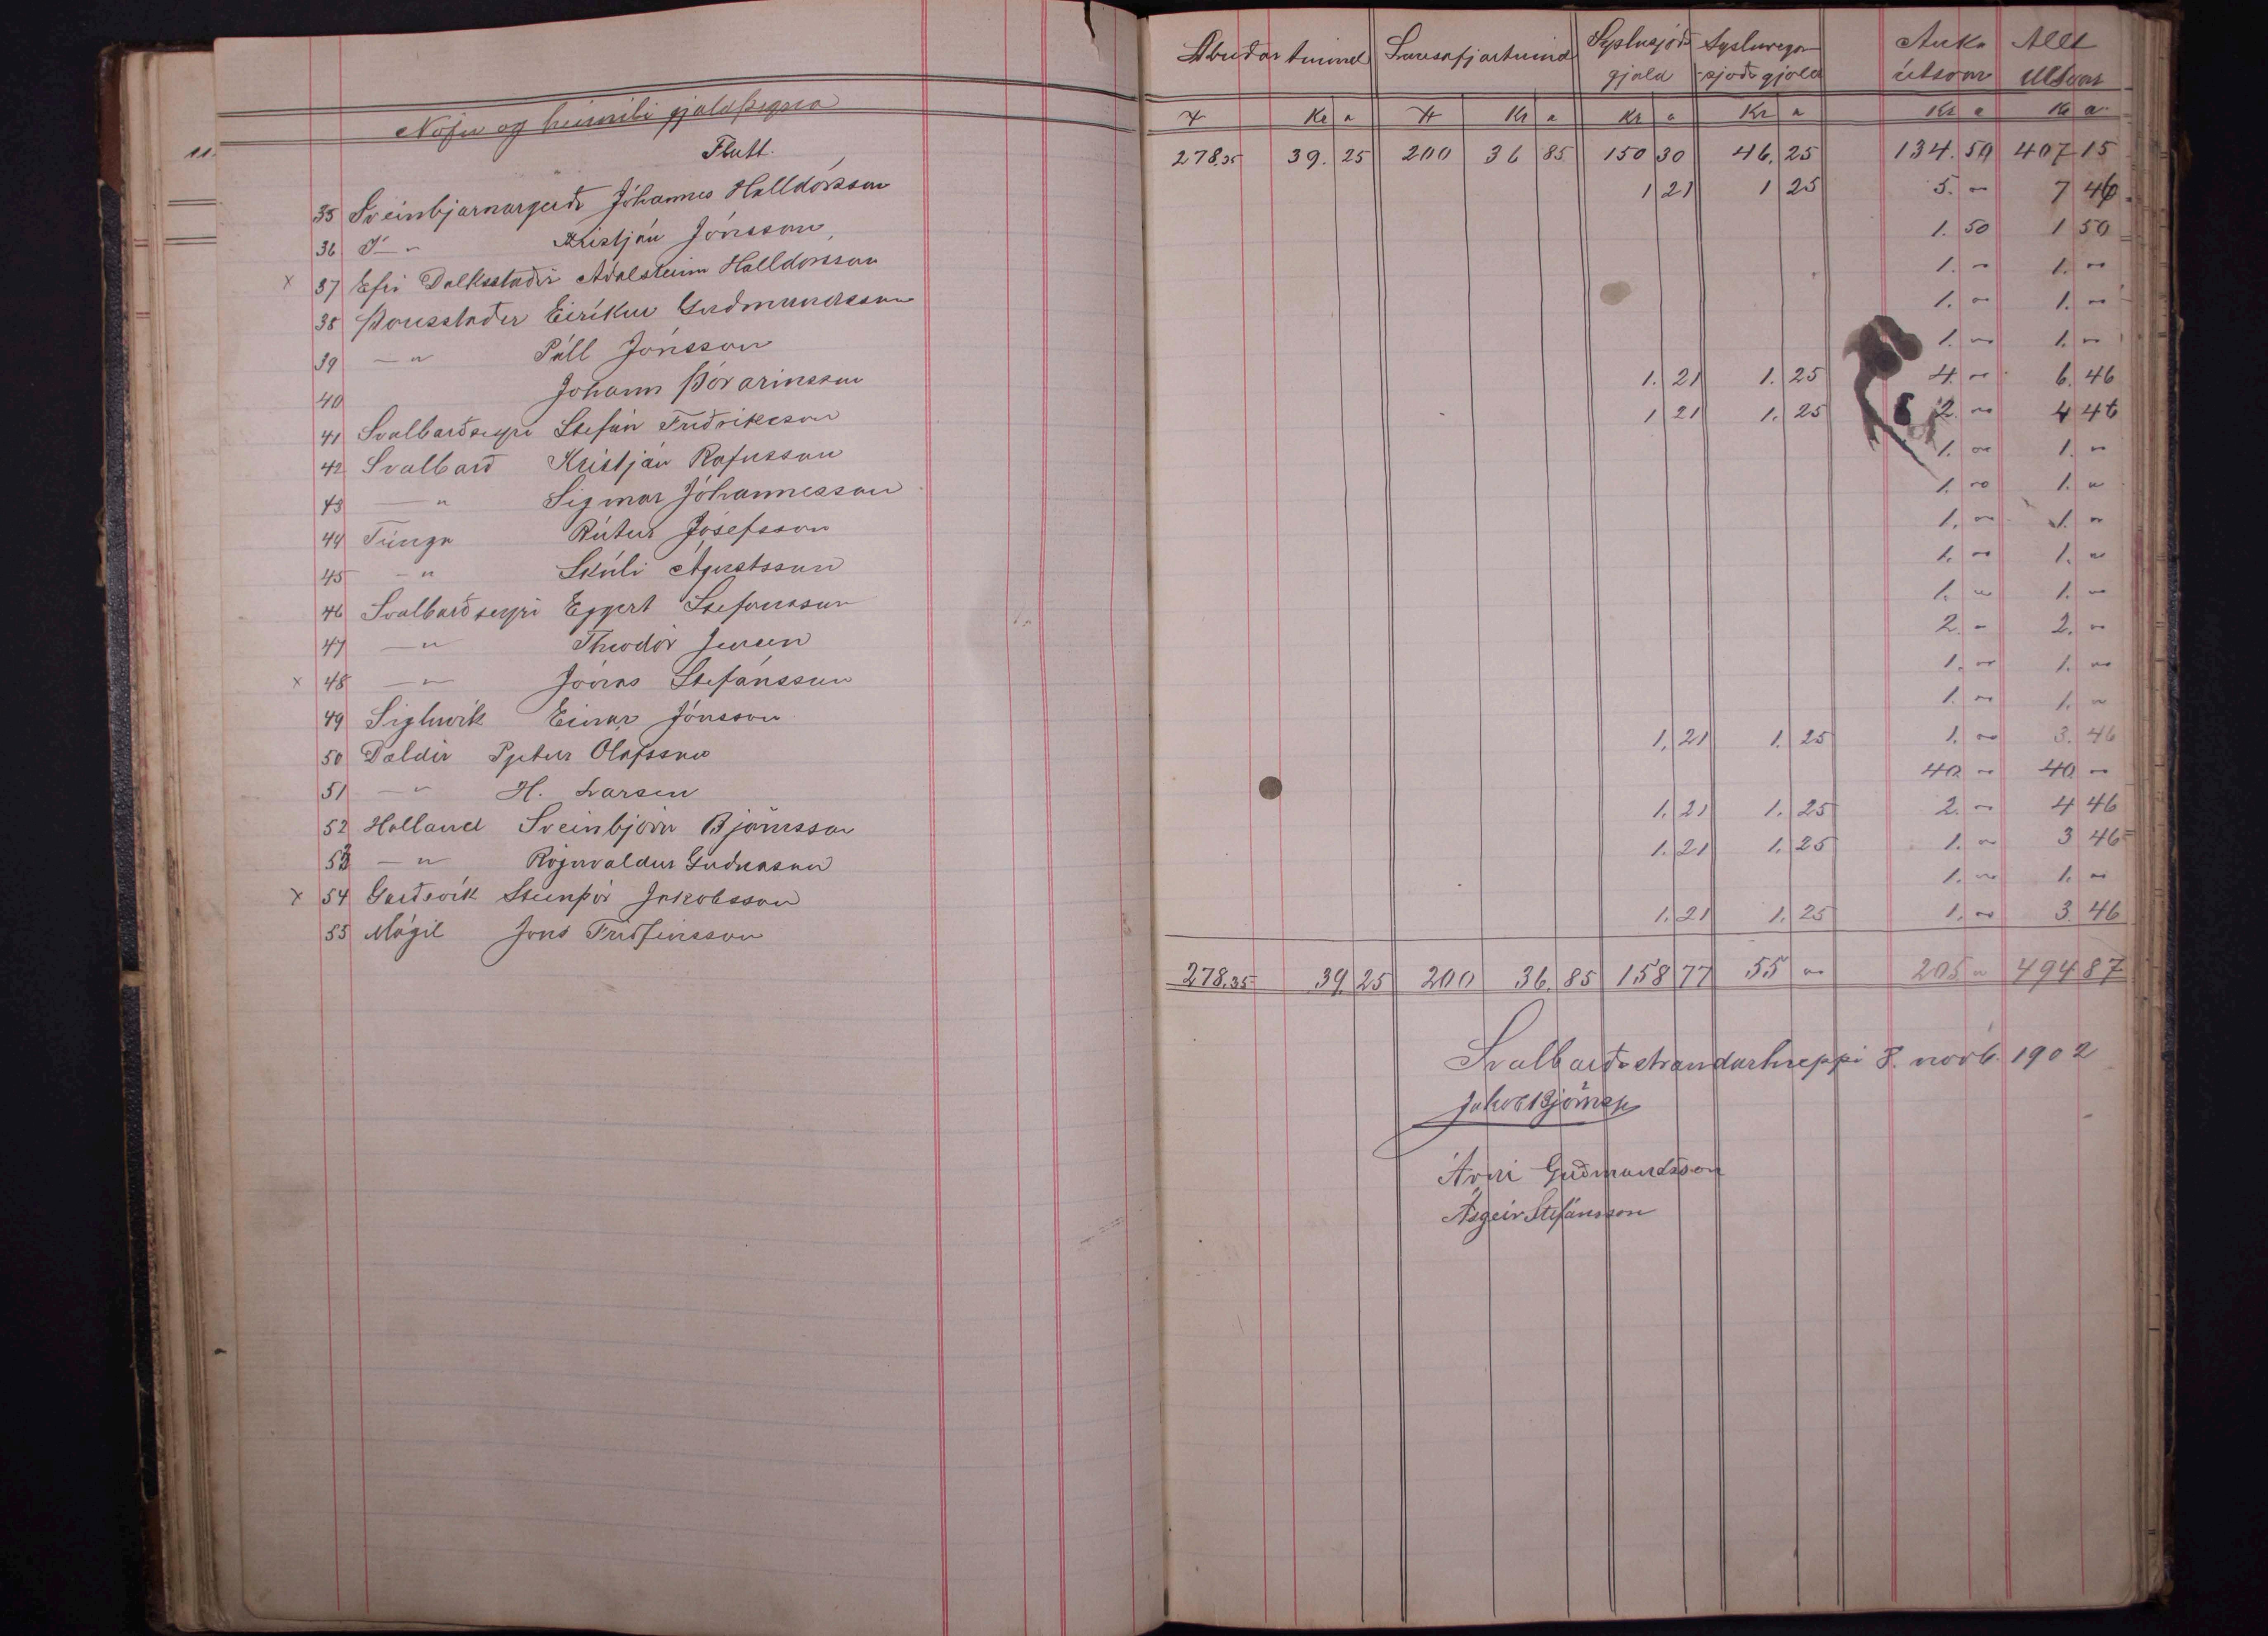 Ábúðar tíund Lausafjártíund Sýslusjóðs gjald Sýsluvega sjóðs gjald Auka útsvar Allt Útsvar
Nöfn og heimili gjaldþegna
Kr a Kr a Kr a Kr a Kr a Kr a
11.
Flutt. 278.35 39. 25 200 36 85 150 30 46. 25 134. 50 407 15
35 Sveinbjarnargerði Jóhannes Halldórsson 1 21 1 25 5. " 7 46
36 " Kristján Jónsson 1. 50 1 50
x 37 Efri Dálksstaðir Aðalsteinn Halldórsson 1. " 1. "
38 Þórisstaðir Eiríkur Guðmundsson 1. " 1. "
39 — " Páll Jónsson 1. " 1. "
40 Jóhann Þórarinsson 1. 21 1. 25 4. " 6. 46
41 Svalbarðseyri Stefán Friðriksson 1 21 1. 25 2. " 4 46
42 Svalbarð Kristján Rafnsson 1. " 1. "
43 — " Sigmar Jóhannesson 1. " 1. "
44 Túnga Rútur Jósefsson 1. " 1. "
45 - " Skúli Ágústsson 1. " 1. "
46 Svalbarðseyri Eggert Stefánsson 1. " 1. "
47 — " Theodór Jensen 2. " 2. "
x 48 — " Jónas Stefánsson 1. " 1. "
49 Sigluvík Einar Jónsson 1. " 1. "
50 Dældir Pjetur Ólafsson 1. 21 1. 25 1. " 3. 46
51 — " H. Larsen 40. " 40 "
52 Halland Sveinbjörn Björnsson 1. 21 1. 25 2. " 4 46
53 — " Rögnvaldur Guðnason 1. 21 1. 25 1. " 3 46
x 54 Garðsvík Steinþór Jakobsson 1. " 1. "
55 Mógil Jons Friðfinsson 1. 21 1. 25 1. " 3. 46
278.35 39 25 200 36. 85 158 77 55 " 205 " 494 87
Svalbarðsstrandarhreppi 8. novb. 1902
Jakob Björnss
Árni Guðmundsson
Ásgeir Stefánsson